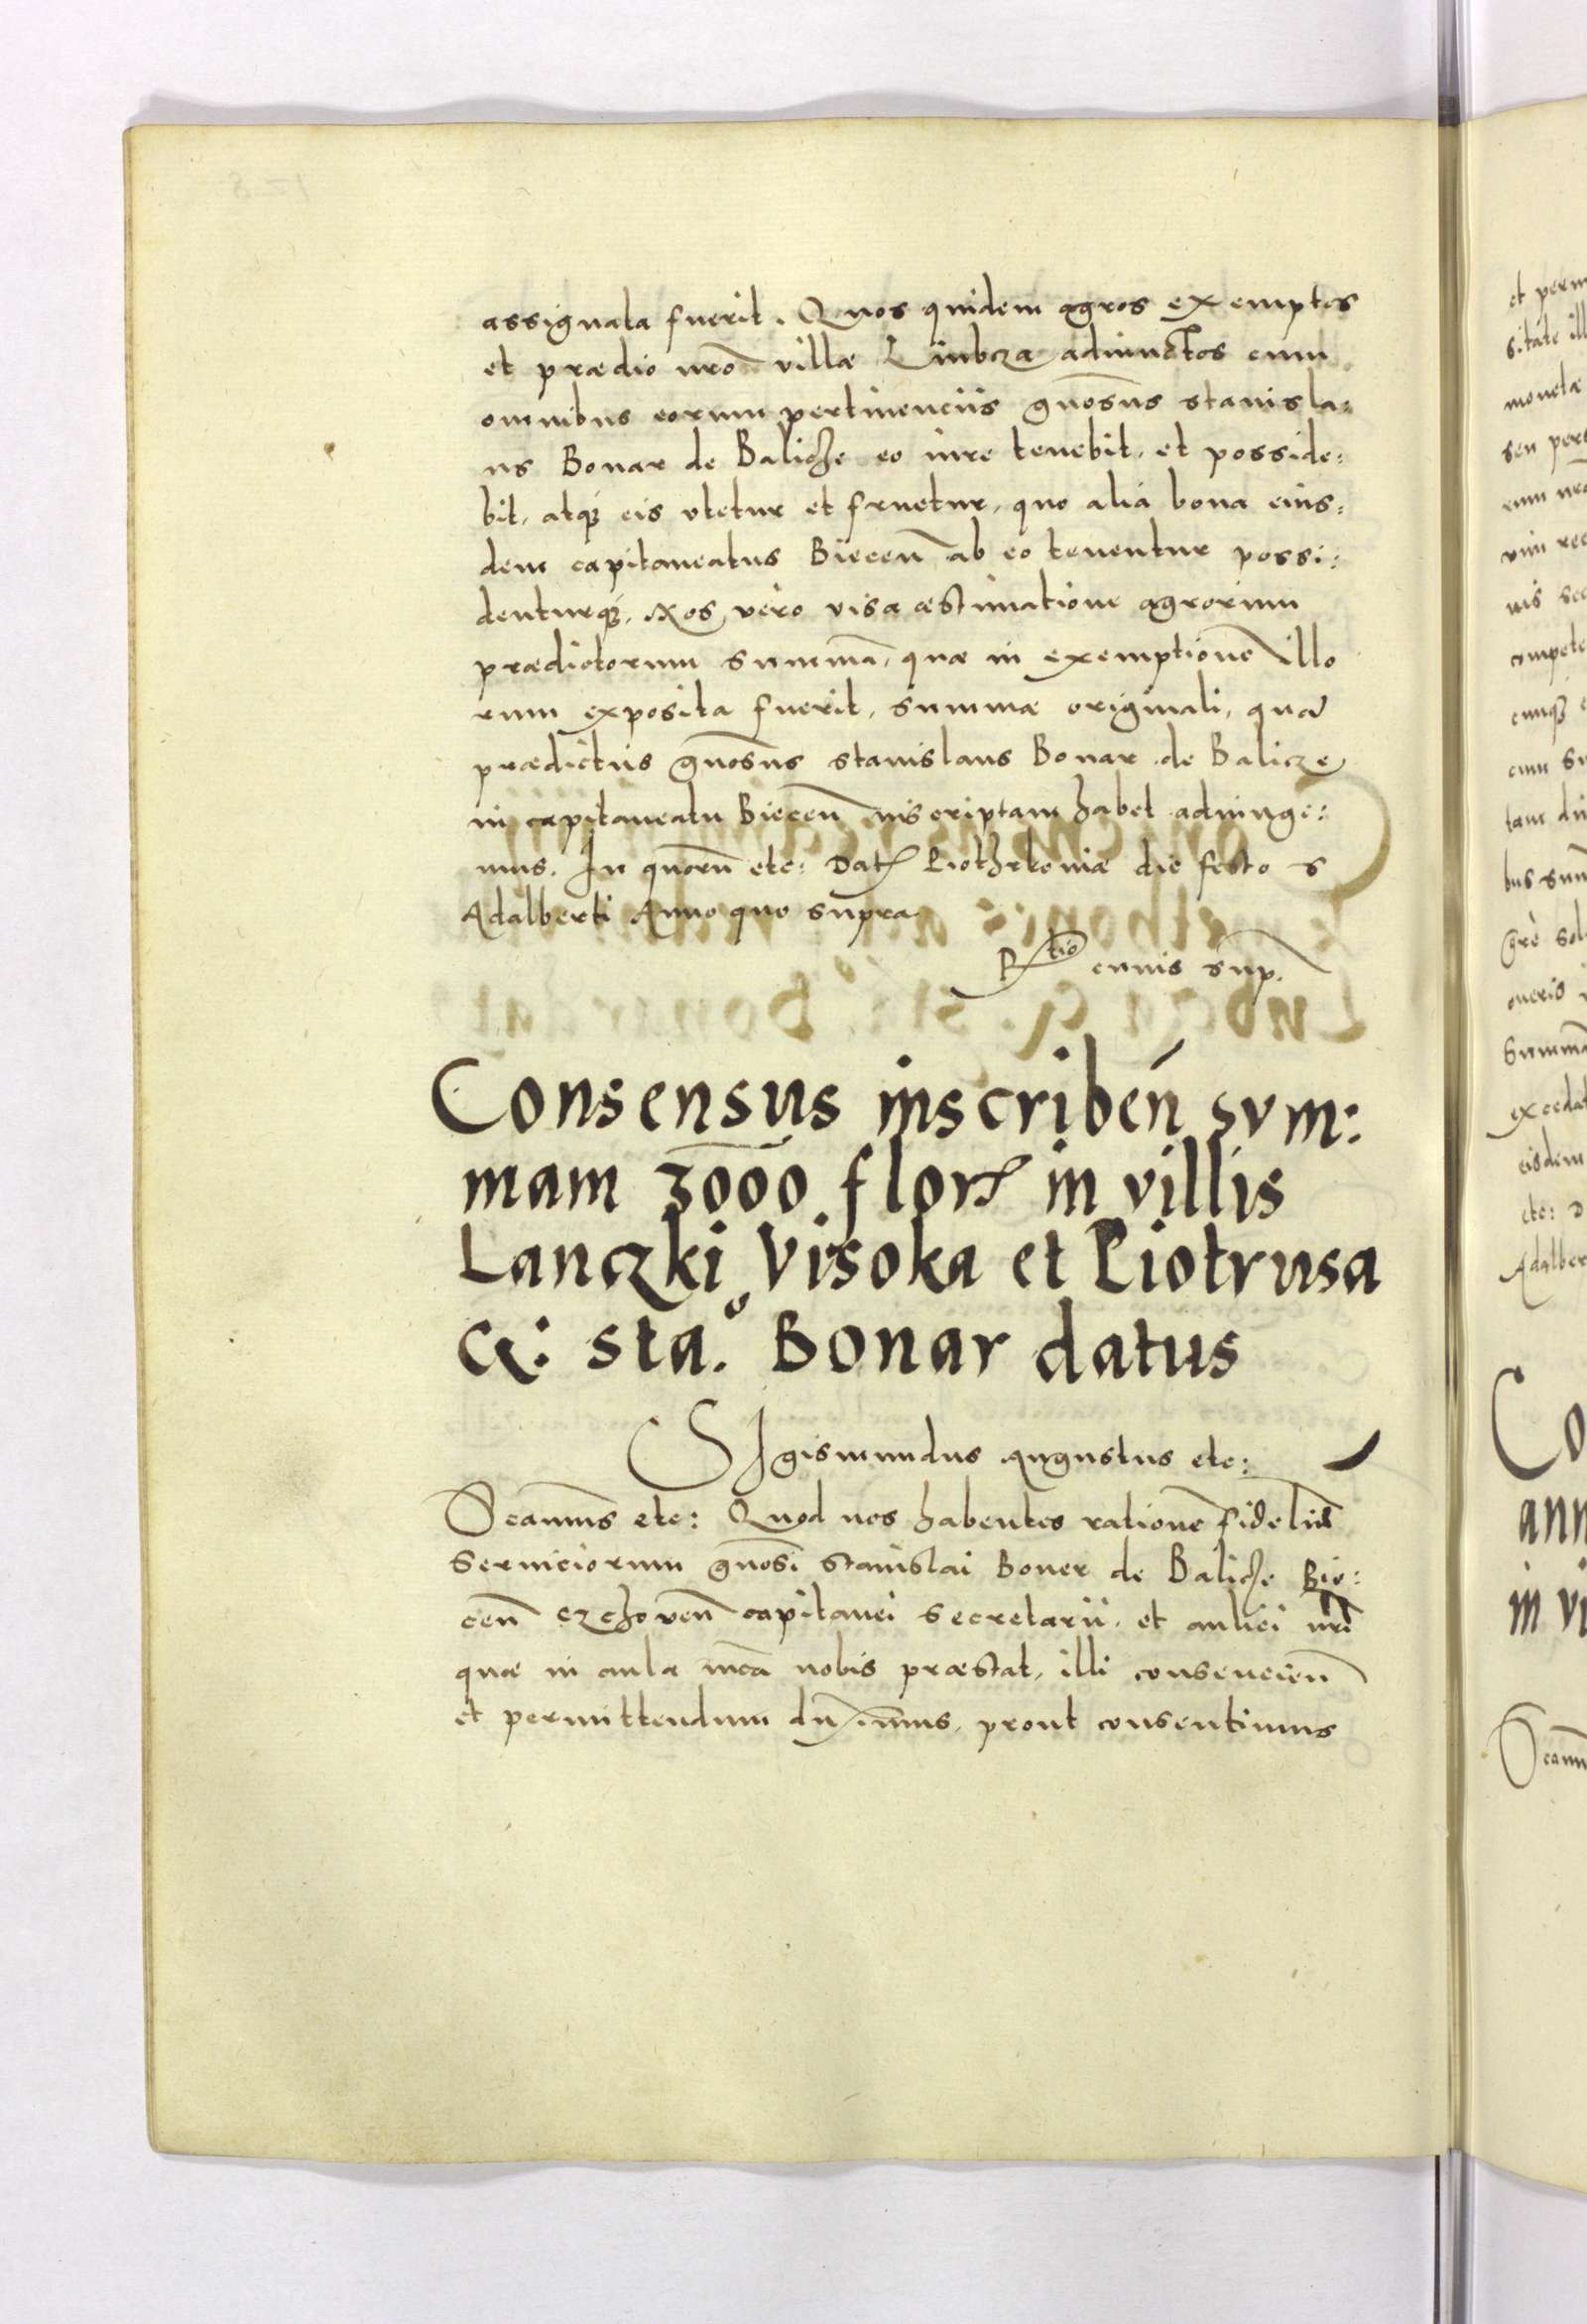 assignata fuerit. Quos quidem agros exemptos
et prædio nrō villæ Liubcza adiunctos cum
omnibus eorum pertinenciis gnōsus Stanisla=
us Bonar de Balicze eo iure tenebit, et posside=
bit, atqȝ eis vtetur et fruetur, quo alia bona eius=
dem capitaneatus Biecen̄ ab eo tenentur possi=
denturqȝ. Nos vero visa æstimatione agrorum
prædictorum summā, quæ in exemptione illo
rum exposita fuerit, summæ originali, quā
prædictus gnōsus Stanislaus Bonar de Balicze
in capitaneatu Biecen̄ inscriptam habet adiunge=
mus. In quorū etc: Dat Piothrkoviæ die festo S
Adalberti Anno quo supra
R^tio cuius sup.
Consensus inscriben̄ sum:
mam 3000 flor in villis
Lanczki Visoka et Piotrusa
G: Sta.° Bonar datus
SIgismundus Augustus etc:
Scamus etc: Quod nos habentes rationē fideliū
Seruiciorum gnōsi Stanislai Boner de Balicze Bie=
cen̄ Czchoven̄ capitanei Secretarii, et aulici nrī
quæ in aula nrā nobis præstat, illi consencien̄
et permittendum duximus, prout consentimus
et perm
sitate ill
monetæ
seu pers
eum
nis
compete
cunqȝ
cum su
tam
bus sum
solu
oneris
Summa
excedat
eisdem
etc: D
Adalber
Co
ann
in vi
Scamus